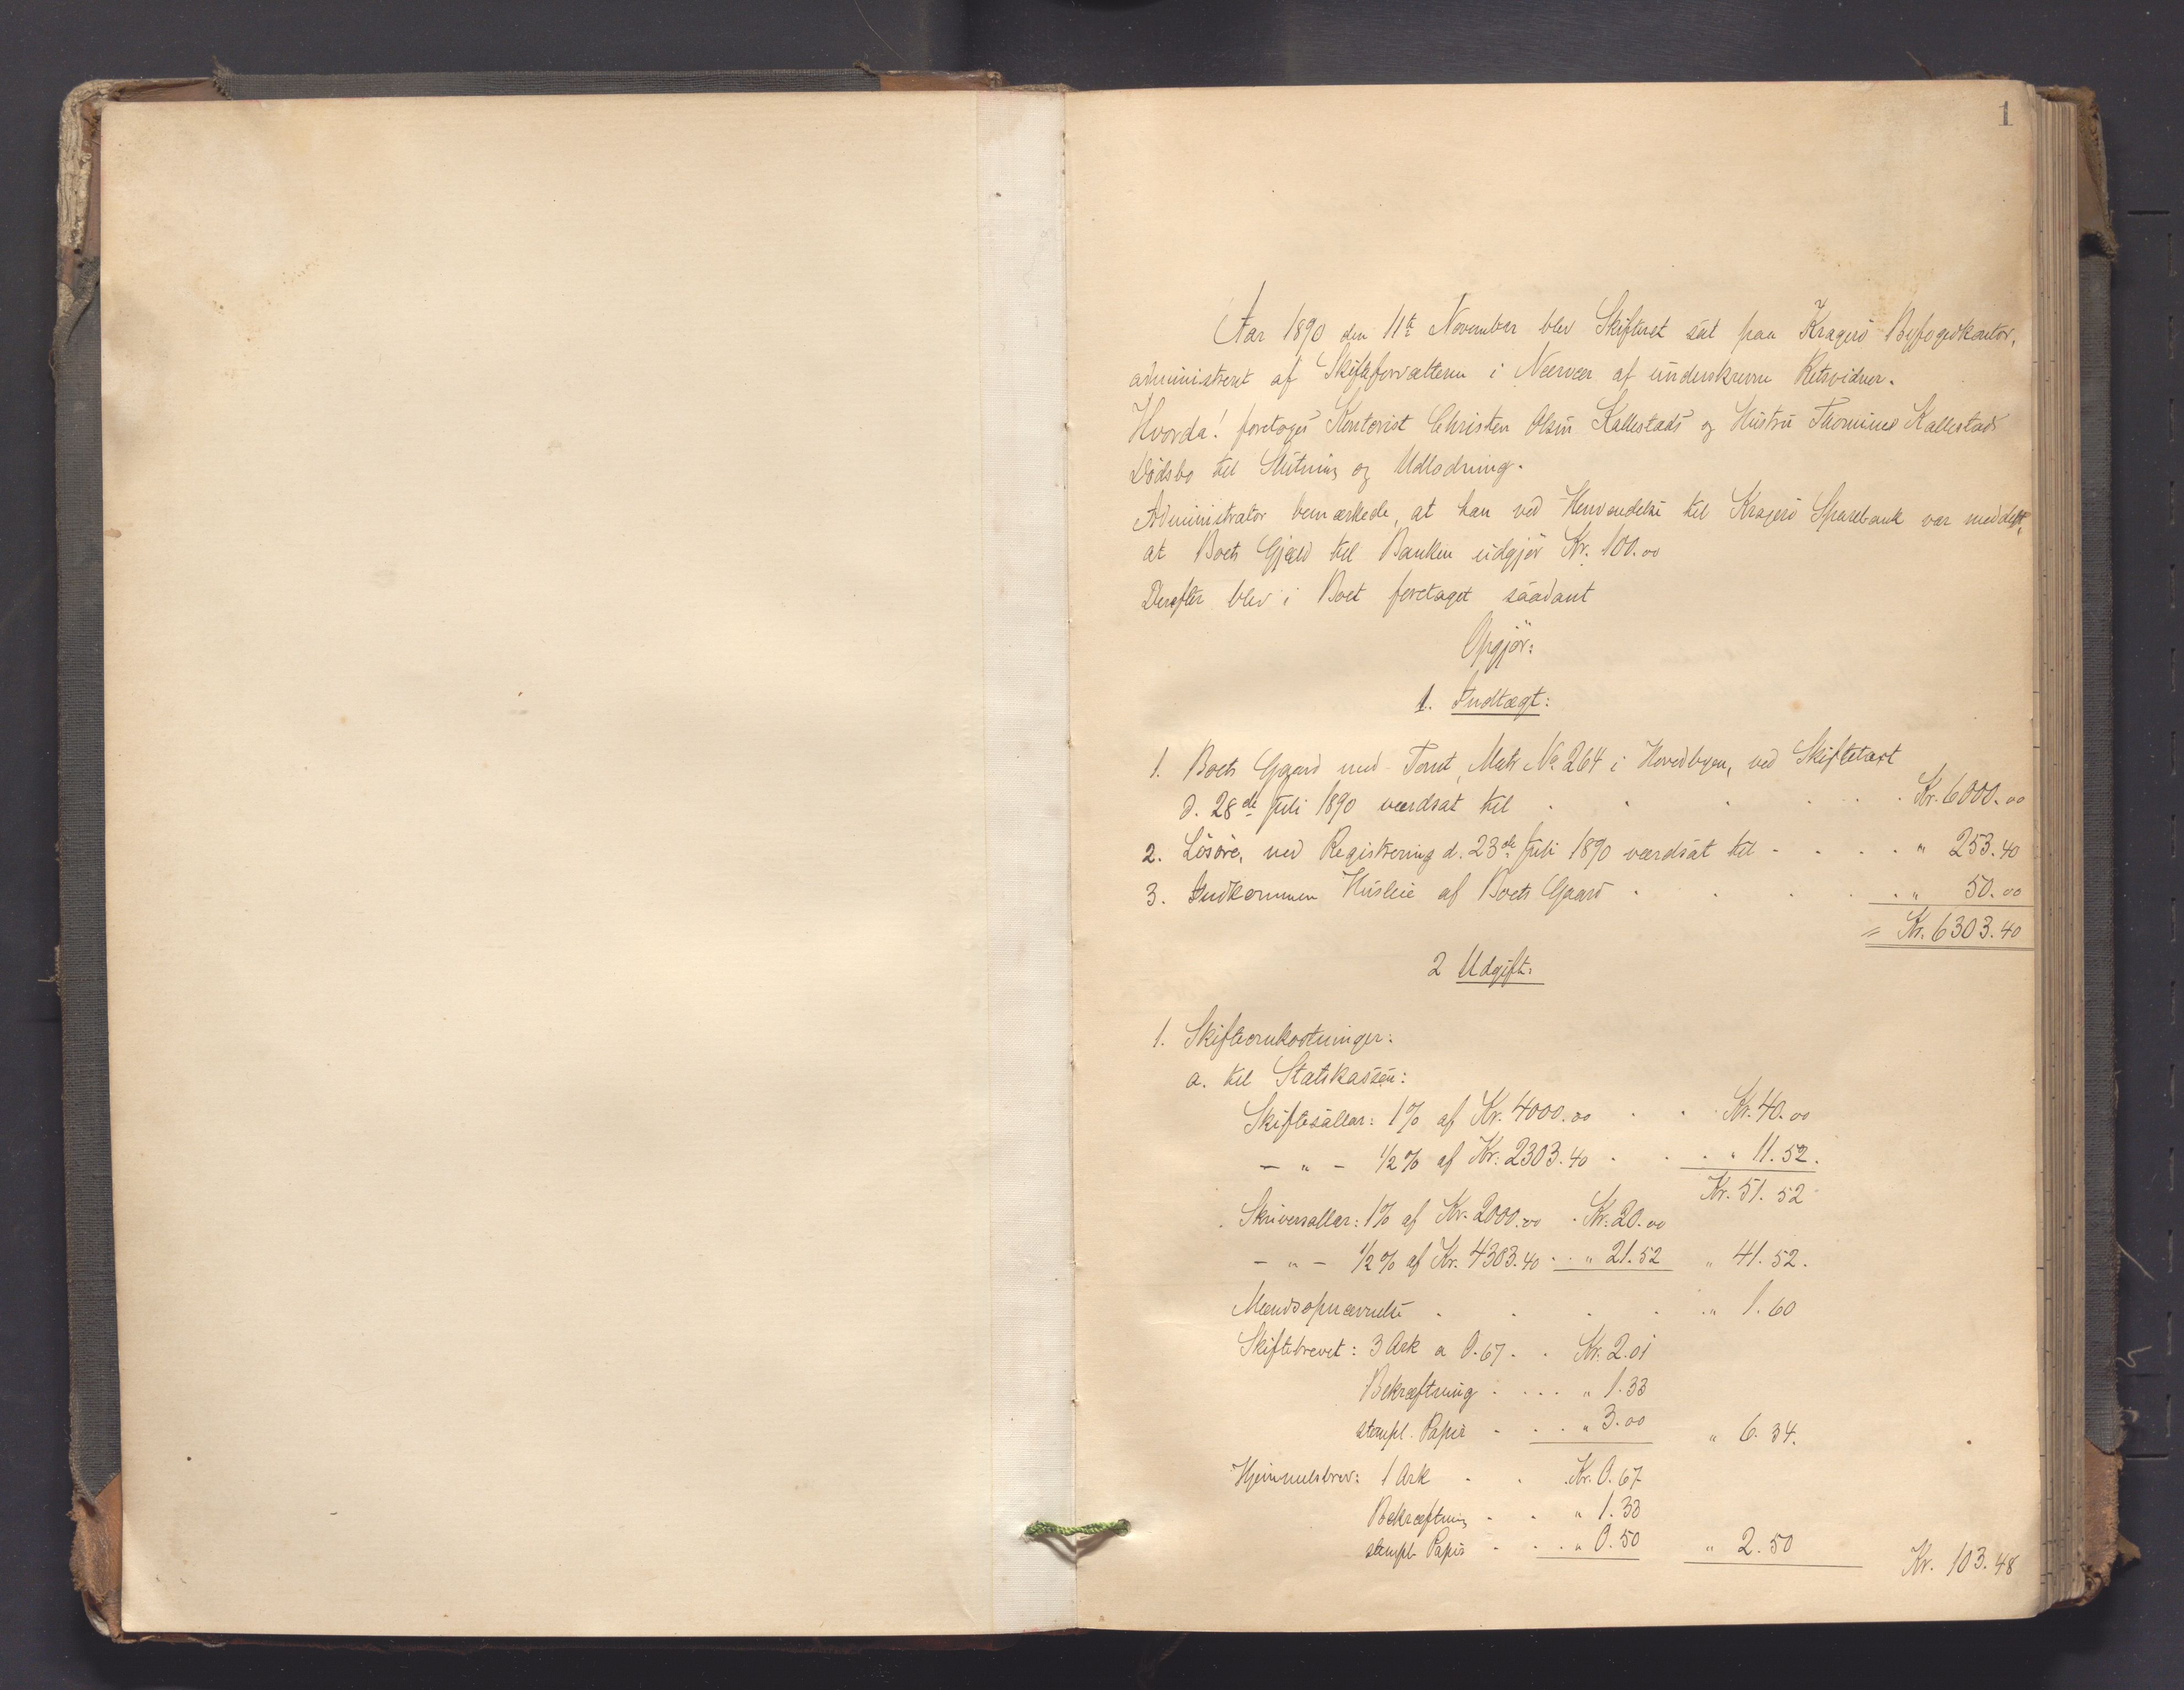 1
Aar 1890 den 11te November blev Skifteret sat paa Kragerø Byfogedkontor,
administreret af Skifteforvalteren i Nærvær af underskrevne Retsvidner.
Hvorda! foretoges Kontorist Christen Olsen Kallestads og Hustru Thomine Kallestads
Dødsbo til Slutning og Udlodning.
Administrator bemærkede, at han ved Henvendelse til Kragerø Sparebank var meddelt,
at Boets Gjæld til Banken udgjør Kr. 100.00
Derefter blev i Boet foretaget saadant
Opgjør:
1. Indtægt:
1. Boets Gaard med Tomt, Matr No 264 i Hovedbyen, ved Skiftetaxt
d. 28de Juli 1890 værdsat til . . . . . . Kr. 6000.00
2. Løsøre, ved Registrering d. 23de Juli 1890 værdsat til - . . . " 253.40
3. Indkommen Husleie af Boets Gaard . . . . . " 50.00
= Kr. 6303.40
2 Udgift:
1. Skifteomkostninger:
a. til Statskassen:
Skiftesallar: 1% af Kr. 4000.00 . . . Kr. 40.00
- " - 1/2 % af Kr. 2303.40 . . . " 11.52.
Kr. 51.52
Skriversallar: 1% af Kr. 2000.00 . Kr. 20.00
- " - 1/2 % af Kr. 4303.40 . . " 21.52 " 41.52.
Mændsopnævnelse . . . . . " 1.60
Skiftebrevet: 3 Ark a 0.67 . . Kr. 2.01
Bekræftning . . . . " 1.33
stempl. Papir . . . " 3.00 " 6.34.
Hjemmelsbrev: 1 Ark . . . Kr. 0.67
Bekræftning . . " 1.33
stempl. Papir . . . " 0.50 " 2.50 Kr. 103.48